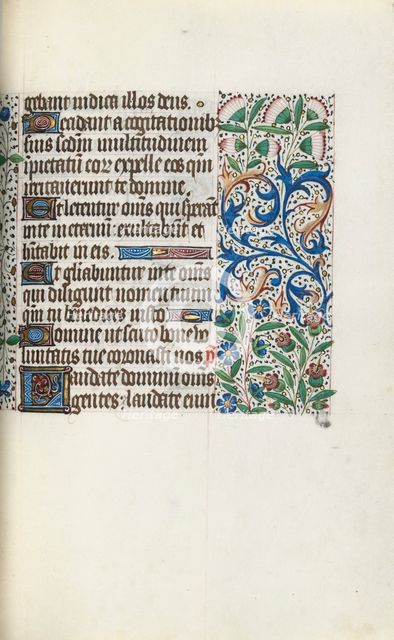 gebant iudica illos deus.
Decidant a cogitationib
suis scdm̄ multitudinem
ipietatum eorꝝ expelle eos qm̄
irritauerunt te domine.
Et letentur om̄s qui sperāt
in te in eternū: exultabūt et
hītabit in eis.
Et gl̄iabuntur in te om̄s
qui diligūt nomen tuum
qm̄ tu benedices iusto
Domine ut scuto bone uo
luntatis tue coronasti nos p̄
Laudate dominū om̄s
gentes: laudate eum
heritage